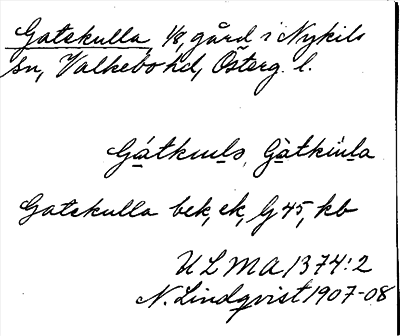 Gatekulla, 1/8, gård i Nykils
sn, Valkebo hd, Österg. l.
Gátkuls, Gàtkùla
Gatekulla bek, ek, Gj 45, kb
ULMA 1374:2
N. Lindqvist 1907-08